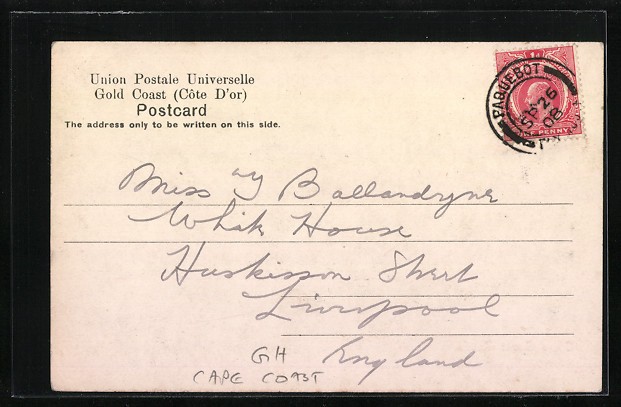 Union Postale Universelle
Gold Coast (Côte D'or)
Postcard
The address only to be written on this side.
PAQUEBOT
SP 25
08
PENNY
Miss Ballandyne
White House
Huskisson Street
Liverpool
England
GH
CAPE COAST